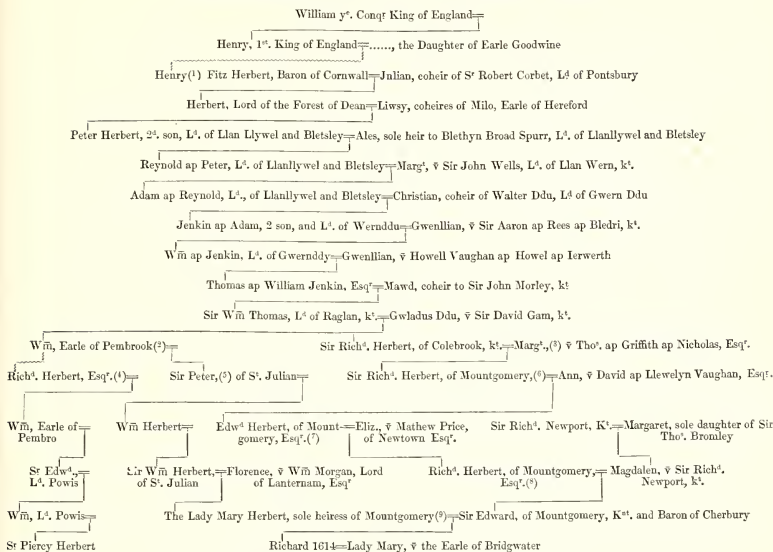 William yᵉ. Conqʳ King of England
Henry, 1ˢᵗ. King of England ......, the Daughter of Earle Goodwine
Henry(¹) Fitz Herbert, Baron of Cornwall Julian, coheir of Sʳ Robert Corbet, Lᵈ of Pontsbury
Herbert, Lord of the Forest of Dean Liwsy, coheires of Milo, Earle of Hereford
Peter Herbert, 2ᵈ. son, Lᵈ. of Llan Llywel and Bletsley Ales, sole heir to Blethyn Broad Spurr, Lᵈ. of Llanllywel and Bletsley
Reynold ap Peter, Lᵈ. of Llanllywel and Bletsley Margᵗ, v̄ Sir John Wells, Lᵈ. of Llan Wern, kᵗ.
Adam ap Reynold, Lᵈ., of Llanllywel and Bletsley Christian, coheir of Walter Ddu, Lᵈ of Gwern Ddu
Jenkin ap Adam, 2 son, and Lᵈ. of Wernddu Gwenllian, v̄ Sir Aaron ap Rees ap Bledri, kᵗ.
Wm̄ ap Jenkin, Lᵈ. of Gwernddy Gwenllian, v̄ Howell Vaughan ap Howel ap Ierwerth
Thomas ap William Jenkin, Esqʳ Mawd, coheir to Sir John Morley, kᵗ
Sir Wm̄ Thomas, Lᵈ of Raglan, kᵗ. Gwladus Ddu, v̄ Sir David Gam, kᵗ.
Wm̄, Earle of Pembrook(²) Sir Richᵈ. Herbert, of Colebrook, kᵗ. Margᵗ.,(³) v̄ Thoˢ. ap Griffith ap Nicholas, Esqʳ.
Richᵈ. Herbert, Esqʳ.(⁴) Sir Peter,(⁵) of Sᵗ. Julian Sir Richᵈ. Herbert, of Mountgomery,(⁶) Ann, v̄ David ap Llewelyn Vaughan, Esqʳ.
Wm̄, Earle of Wm̄ Herbert Edwᵈ Herbert, of Mount- Eliz., v̄ Mathew Price, Sir Richᵈ. Newport, Kᵗ. Margaret, sole daughter of Sir
Pembro gomery, Esqʳ.(⁷) of Newtown Esqʳ. Thoˢ. Bromley
Sʳ Edwᵈ., Sir Wm̄ Herbert, Florence, v̄ Wm̄ Morgan, Lord Richᵈ. Herbert, of Mountgomery, Magdalen, v̄ Sir Richᵈ.
Lᵈ. Powis of Sᵗ. Julian of Lanternam, Esqʳ Esqʳ.(⁸) Newport, kᵗ.
Wm̄, Lᵈ. Powis The Lady Mary Herbert, sole heiress of Mountgomery(⁹) Sir Edward, of Mountgomery, Kᵇᵗ. and Baron of Cherbury
Sʳ Piercy Herbert Richard 1614 Lady Mary, v̄ the Earle of Bridgwater